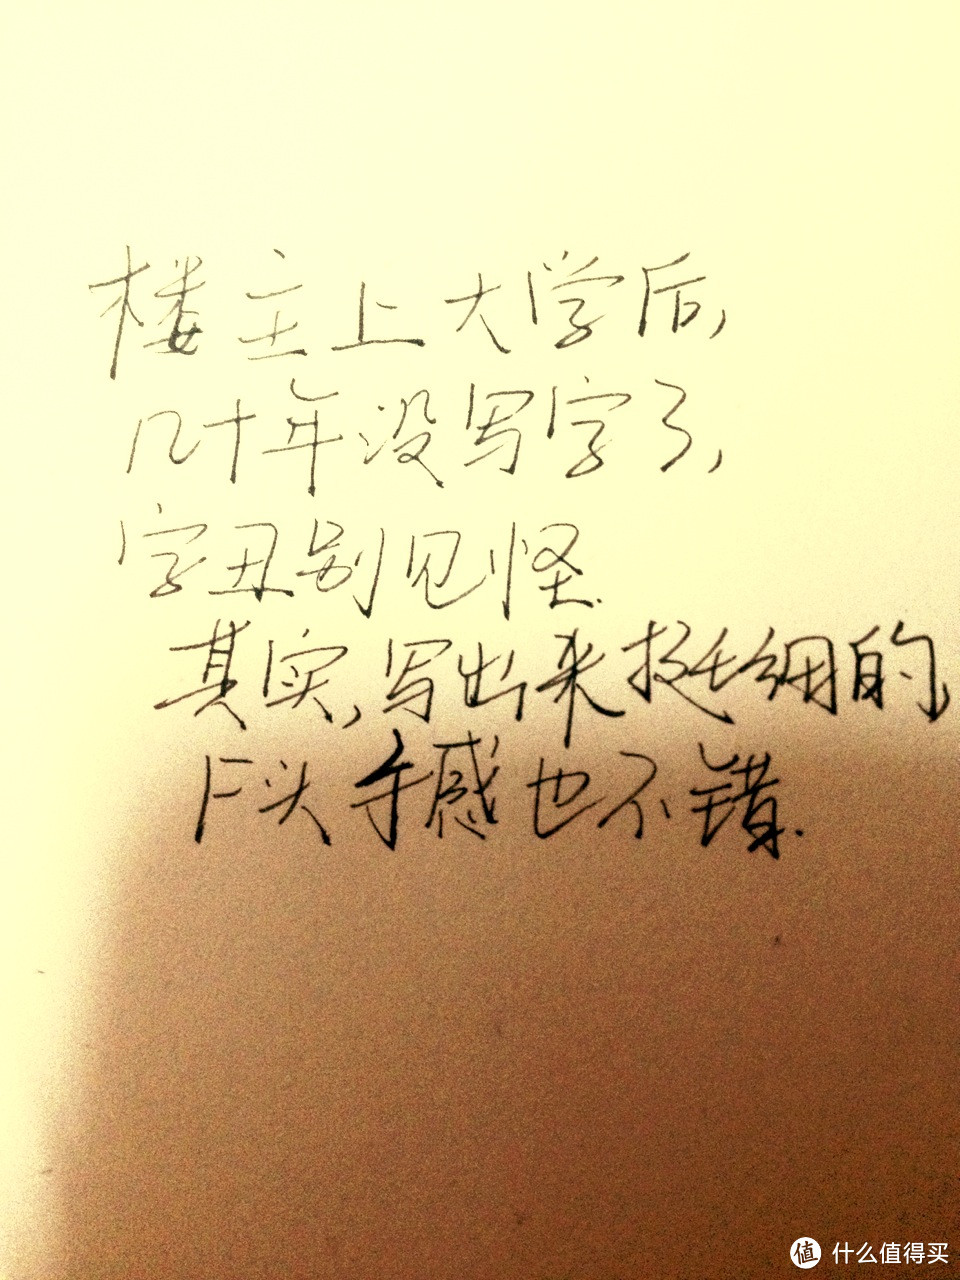 楼主上大学后,
几十年没写字了,
字丑别见怪.
其实,写出来挺细的,
F头手感也不错.
值 什么值得买